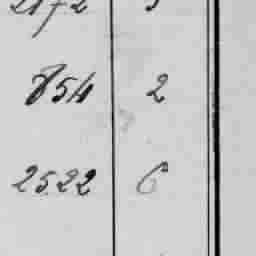 854 2
2522 6